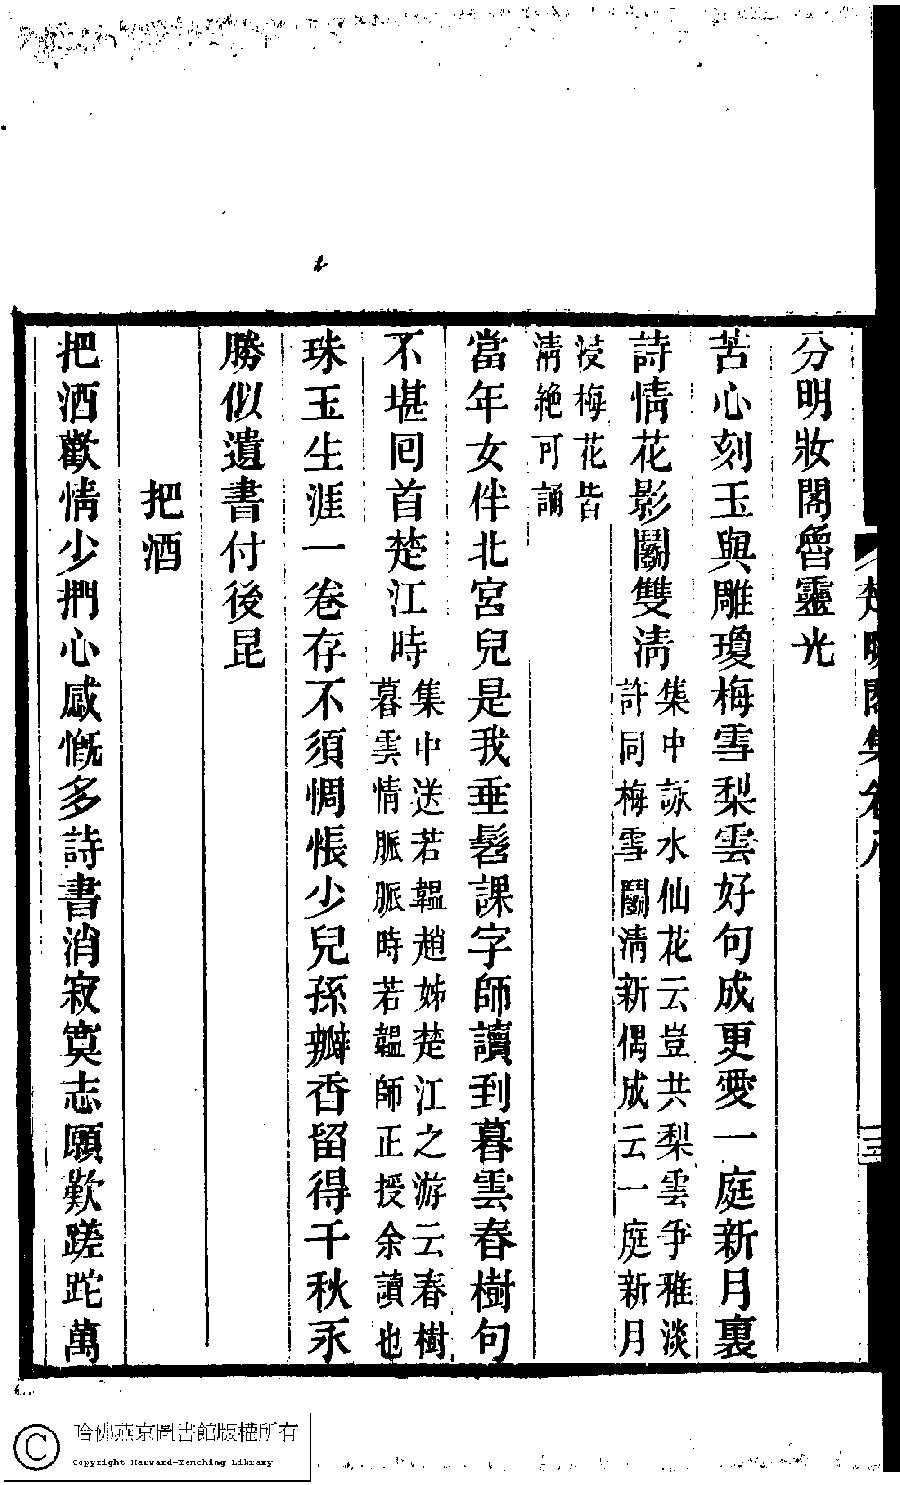 分明妝閣魯靈光
苦心刻玉與雕瓊梅雪梨雲好句成更愛一庭新月裏
詩情花影鬬雙清
集中詠水仙花云豈共梨雲爭雅淡
許同梅雪鬬清新偶成云一庭新月
浸梅花皆
清絶可誦
當年女伴北宮兒是我垂髫課字師讀到暮雲春樹句
不堪回首楚江時
集中送若韞趙姊楚江之游云春樹
暮雲情脈脈時若韞師正授余讀也
珠玉生涯一卷存不須惆悵少兒孫瓣香留得千秋永
勝似遺書付後昆
把酒
把酒歡情少捫心感慨多詩書消寂寞志願歎蹉跎萬
哈佛燕京圖書館版權所有
Copyright Harvard-Yenching Library